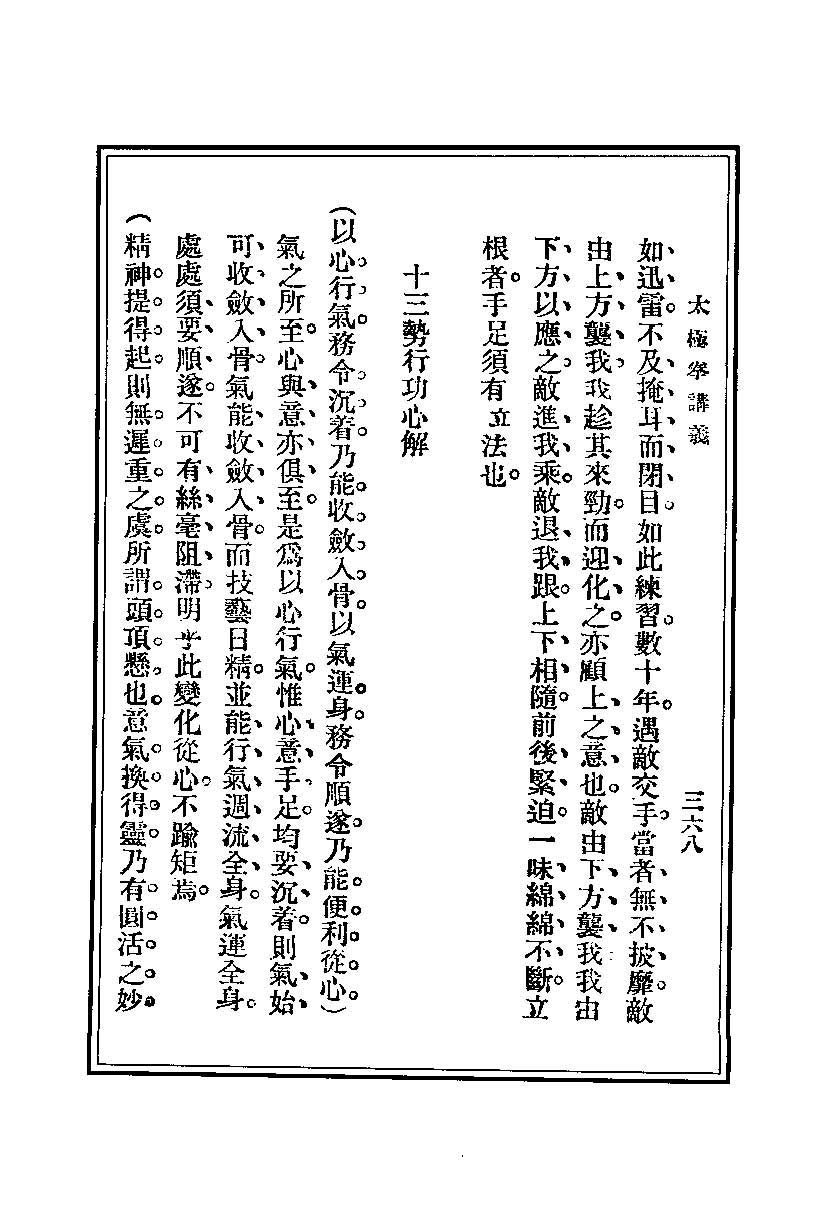 太極拳講義
三六八
如迅雷。不及掩耳而閉目如此練習。數十年。遇敵交手。當者無不披靡。敵
由上方襲我我趁其來勁。而迎化之。亦顧上之意也。敵由下方襲我我由
下方以應之。敵進我乘。敵退我跟。上下相隨。前後緊迫。一味綿綿不斷。立
根者。手足須有立法也。
十三勢行功心解
(以心行氣。務令沉着。乃能收斂入骨。以氣運身。務令順遂。乃能便利從心。)
氣之所至。心與意亦俱至。是爲以心行氣。惟心意手足。均要沉着。則氣始
可收斂入骨氣能收斂入骨。而技藝日精。並能行氣週流全身。氣運全身。
處處須要順遂。不可有絲毫阻滯。明乎此變化從心。不踰矩焉。
(精神提得起。則無遲重之虞。所謂頭頂懸也。意氣換得靈。乃有圓活之妙。